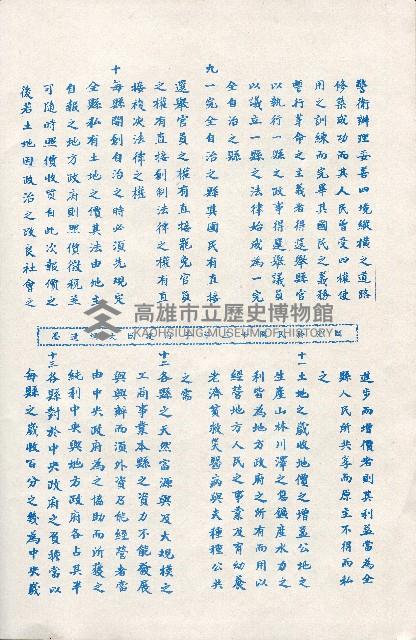 警衛辦理妥善四境縱橫之道路
修築成功而其人民曾受四權使
用之訓練而完畢其國民之義務
誓行革命之主義者得選舉縣官
以執行一縣之政事得選舉議員
以議立一縣之法律始成為一完
全自治之縣
九 一完全自治之縣其國民有直接
選舉官員之權有直接罷免官員
之權有直接創制法律之權有直
接複決法律之權
十 每縣開創自治之時必須先規定
全縣私有土地之價其法由地主
自報之地方政府則照價徵稅並
可隨時照價收買自此次報價之
後若土地因政治之改良社會之
高雄市立歷史博物館
KAOHSIUNG MUSEUM OF HISTORY
進步而增價者則其利益當為全
縣人民所共享而原主不得而私
之
十一 土地之歲收地價之增益公地之
生產山林川澤之息鑛產水力之
利皆為地方政府之所有而用以
經營地方人民之事業及育幼養
老濟貧救災醫病與夫種種公共
之需
十二 各縣之天然富源與及大規模之
工商事業本縣之資力不能發展
與興辦而須外資乃能經營者當
由中央政府為之協助而所獲之
純利中央與地方政府各占其半
十三 各縣對於中央政府之負擔當以
每縣之歲收百分之幾為中央歲